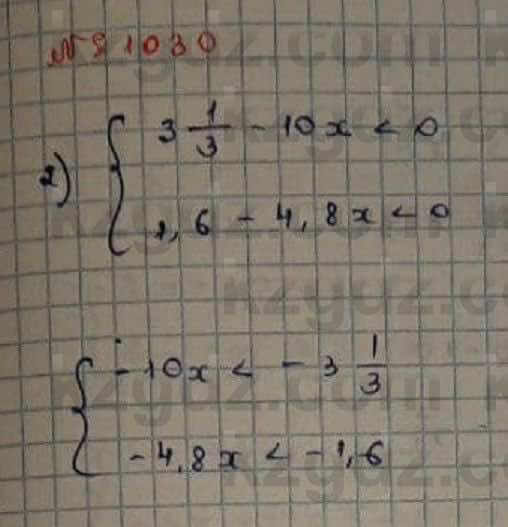 № 1030
2) { 3 1/3 - 10x < 0
1,6 - 4,8x < 0
{ -10x < -3 1/3
-4,8x < -1,6
kzgdz.com